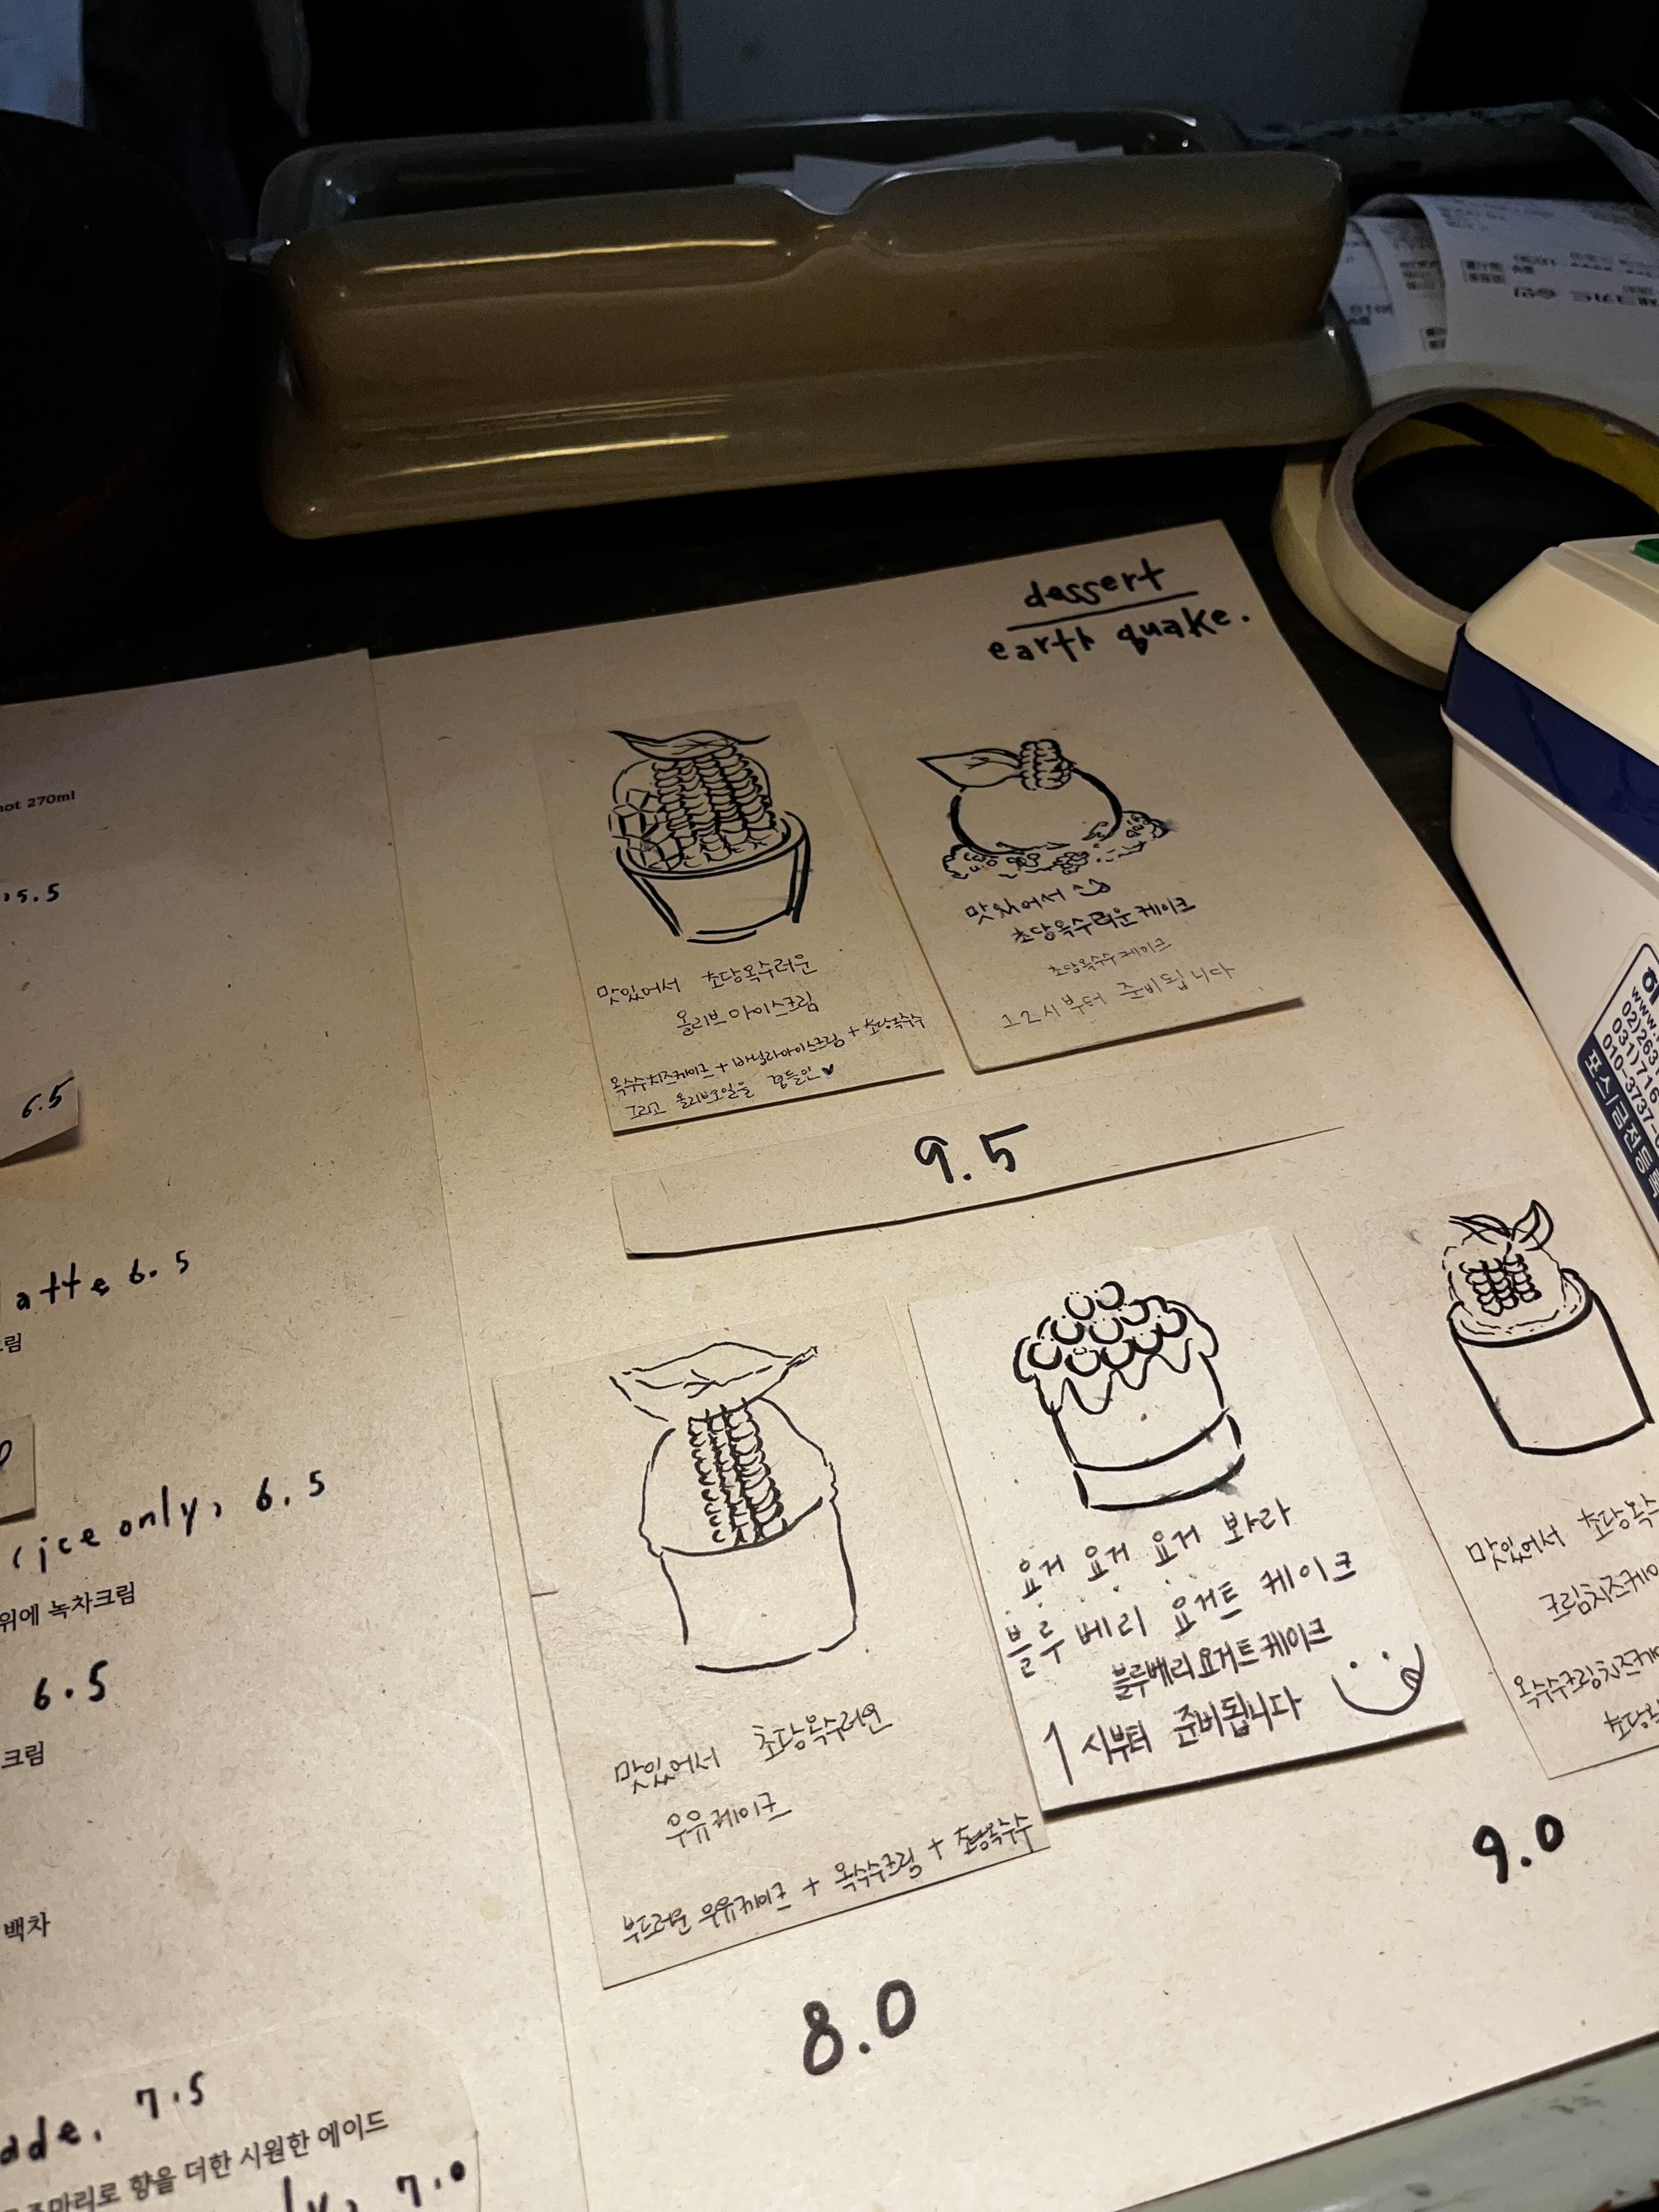 dessert
earth quake.
맛있어서 초당옥수러운
올리브 아이스크림
옥수수치즈케이크 + 바닐라아이스크림 + 초당옥수수
그리고 올리브오일을 곁들인♥
맛있어서
초당옥수러운케이크
초당옥수수케이크
12시부터 준비됩니다
9.5
맛있어서 초당옥수러운
우유케이크
부드러운 우유케이크 + 옥수수크림 + 초당옥수수
8.0
요거 요거 요거 봐라
블루베리 요거트 케이크
블루베리요거트케이크
1시부터 준비됩니다
맛있어서 초당옥수
크림치즈케이
옥수수크림치즈케이
초당옥
9.0
hot 270ml
5.5
6.5
latte 6.5
크림
ice only, 6.5
위에 녹차크림
6.5
크림
백차
ade, 7.5
로즈마리로 향을 더한 시원한 에이드
ly, 7.0
www.
02)263
031)716
010-3737-
포스|금전등록